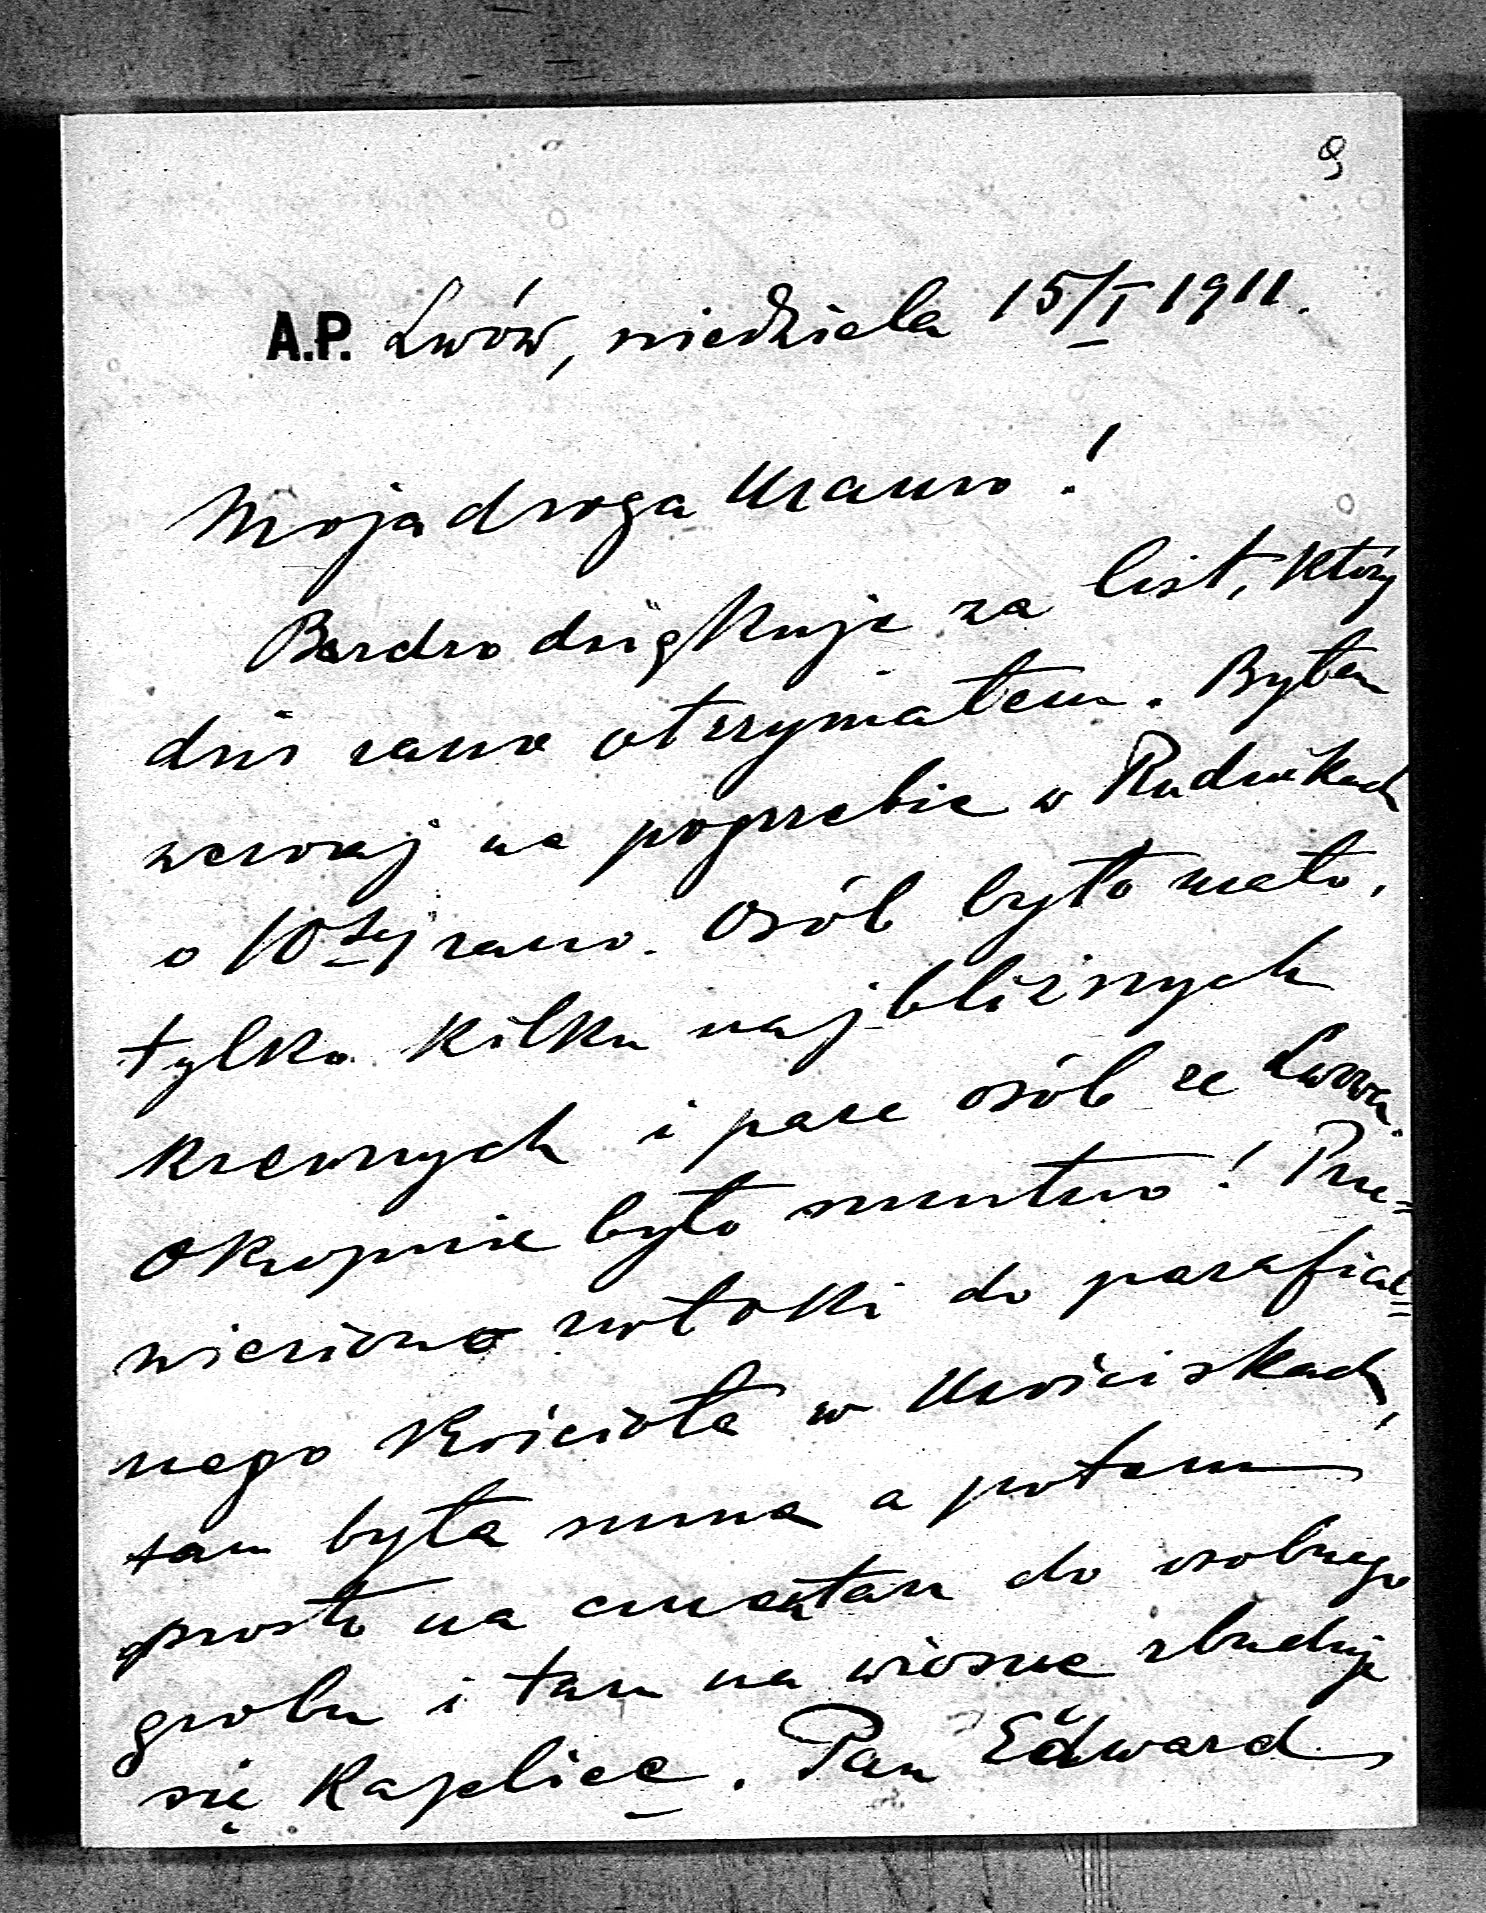 9
A.P. Lwów, niedziela 15/I 1911.
Moja droga Mamo!
Bardzo dziękuję za list, który
dziś rano otrzymałem. Byłem
wczoraj na pogrzebie w Rudnikach
o 10tej rano. Osób było mało,
tylko kilku najbliższych
krewnych i parę osób ze Lwowa.
Okropnie było smutno! Prze=
wieziono zwłoki do parafial=
nego kościoła w Mościskach,
tam była suma a potem
prosto na cmentarz do osobnego
grobu i tam na wiosnę zbuduje
się kaplicę. Pan Edward